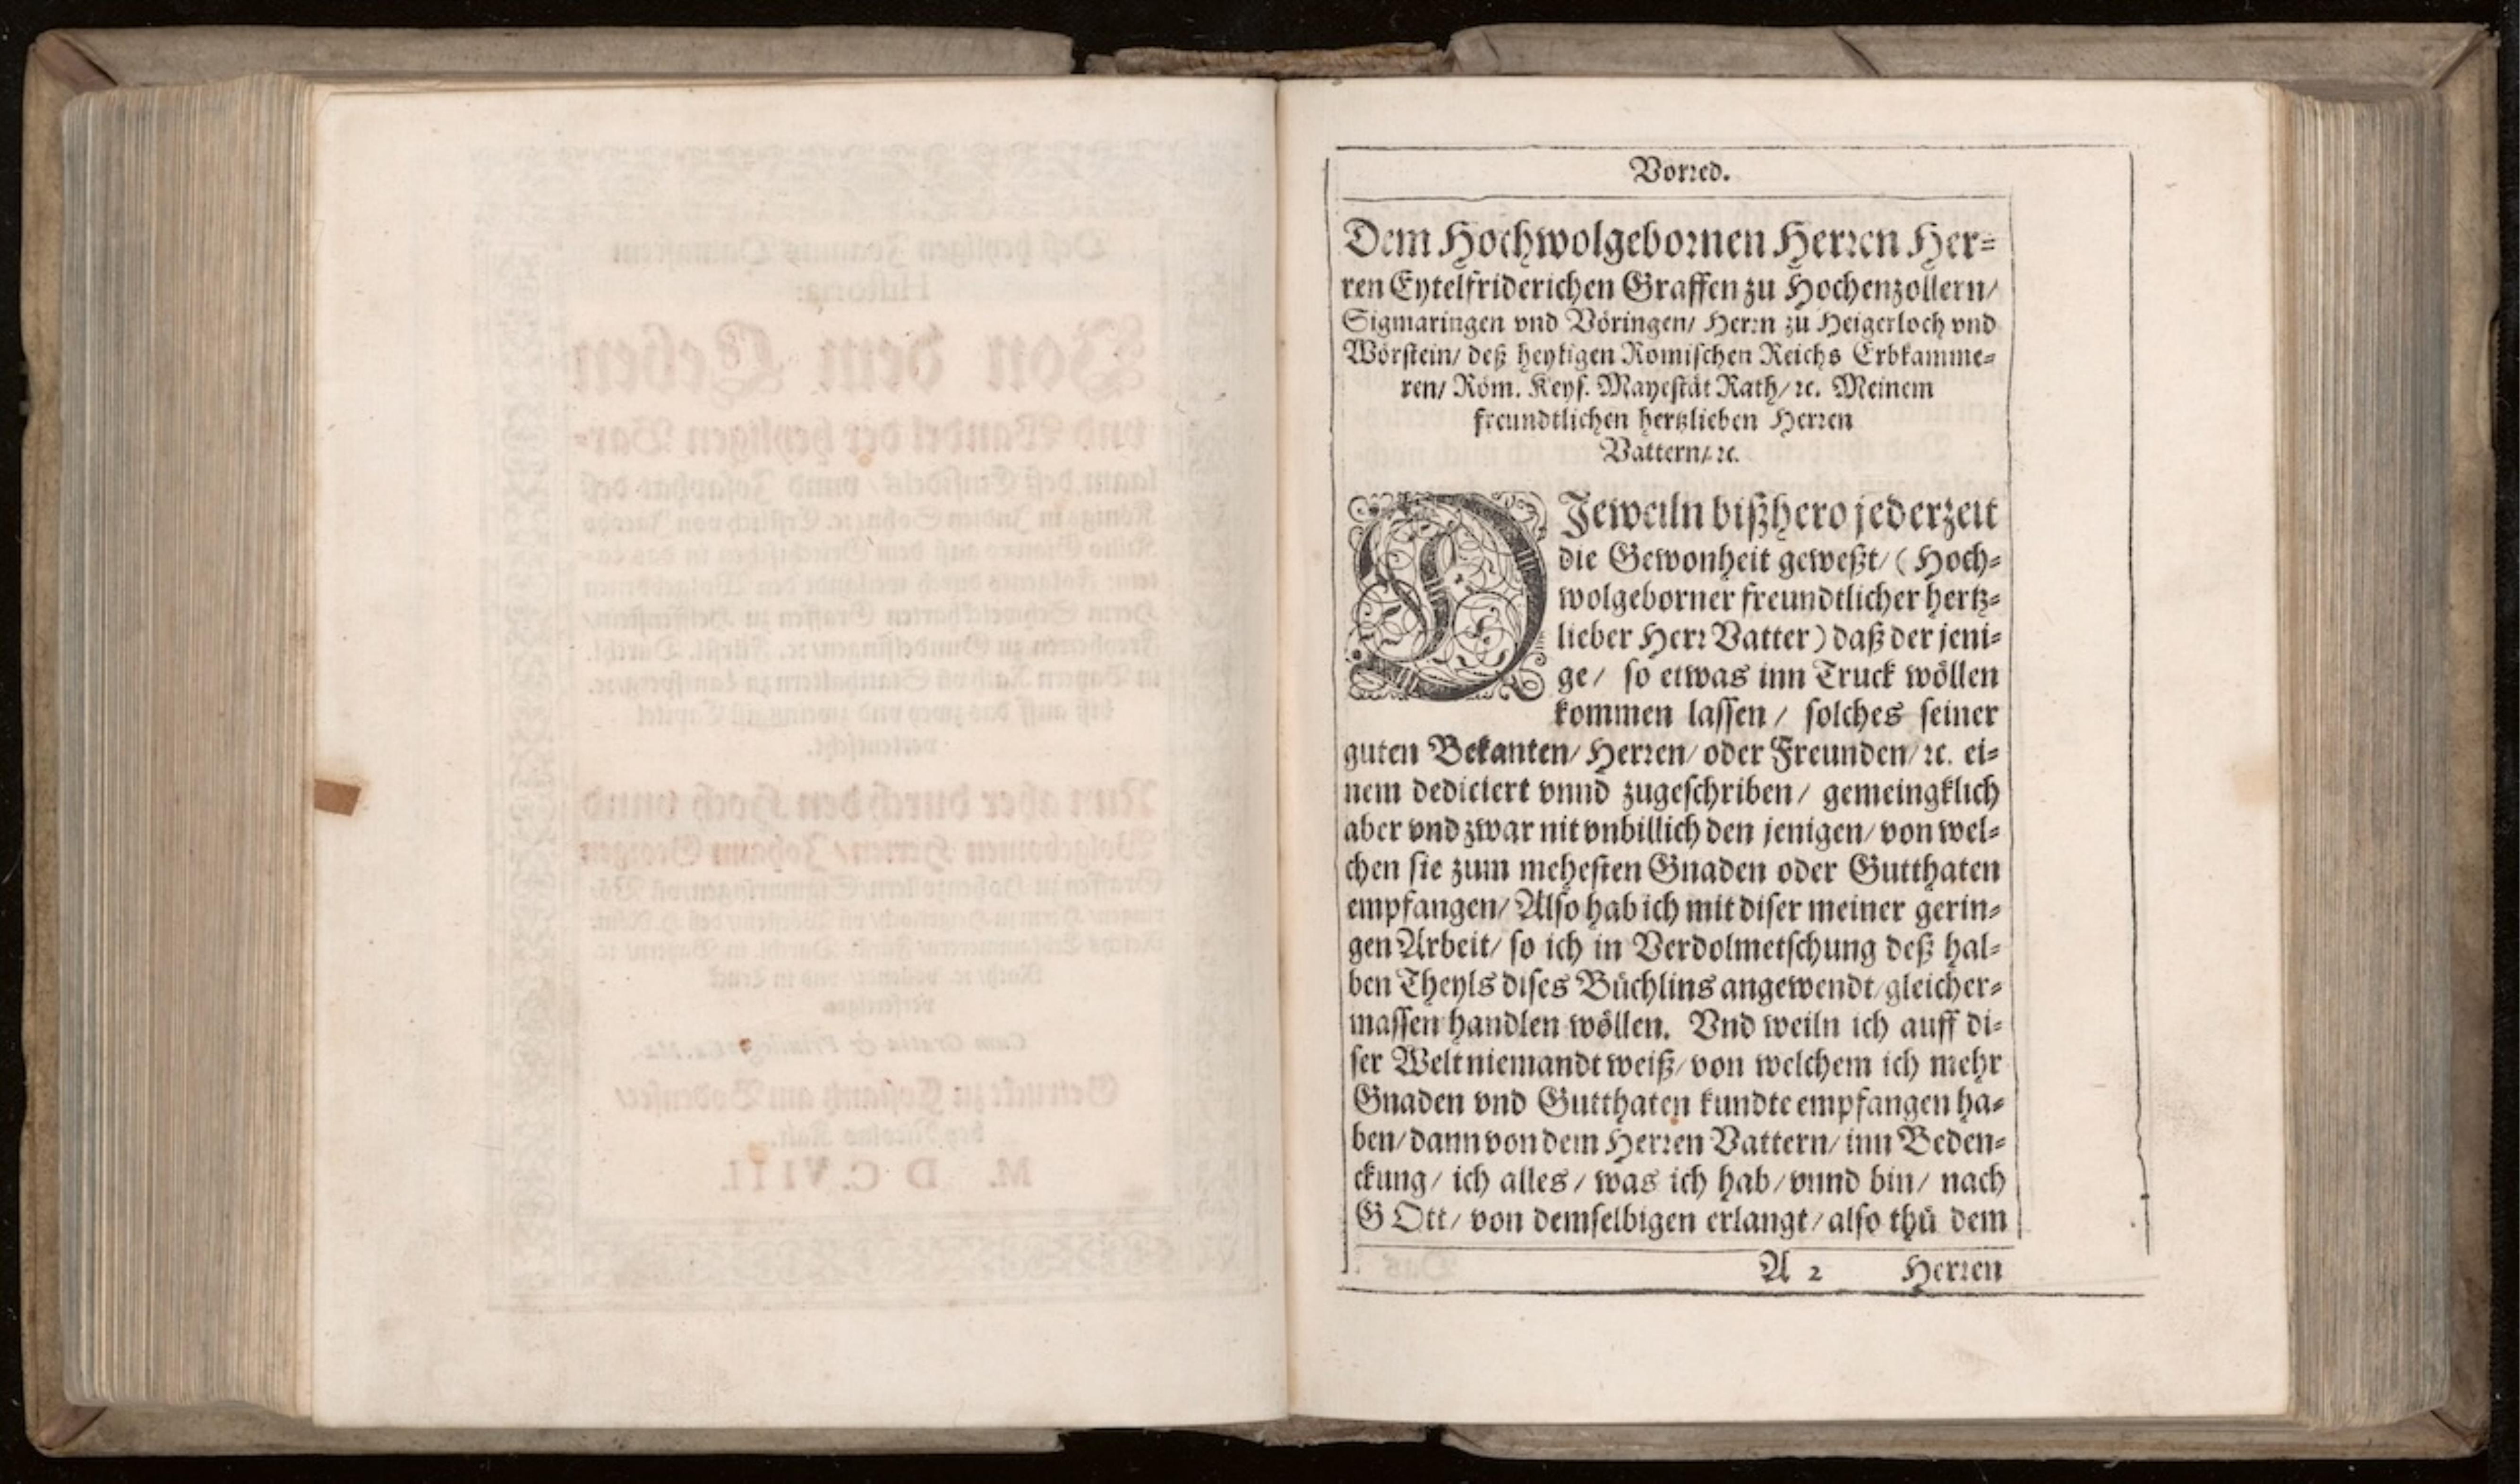 Vorred.
Dem Hochwolgebornen Herren Her-
ren Eytelfriderichen Graffen zu Hochenzollern/
Sigmaringen vnd Vöringen/ Herrn zu Heigerloch vnd
Wörstein/ deß heyligen Römischen Reichs Erbkamme-
ren/ Röm. Keys. Mayestät Rath/ ꝛc. Meinem
freundtlichen hertzlieben Herren
Vattern/ ꝛc.
DJeweiln bißhero jederzeit
die Gewonheit geweßt/ (Hoch-
wolgeborner freundtlicher hertz-
lieber Herr Vatter) daß der jeni-
ge/ so etwas inn Truck wöllen
kommen lassen/ solches seiner
guten Bekanten/ Herren/ oder Freunden/ ꝛc. ei-
nem dediciert vnnd zugeschriben/ gemeingklich
aber vnd zwar nit vnbillich den jenigen/ von wel-
chen sie zum mehesten Gnaden oder Gutthaten
empfangen/ Also hab ich mit diser meiner gerin-
gen Arbeit/ so ich in Verdolmetschung deß hal-
ben Theyls dises Büchlins angewendt/ gleicher-
massen handlen wöllen. Vnd weiln ich auff di-
ser Welt niemandt weiß/ von welchem ich mehr
Gnaden vnd Gutthaten kundte empfangen ha-
ben/ dann von dem Herren Vattern/ inn Beden-
ckung/ ich alles/ was ich hab/ vnnd bin/ nach
GOtt/ von demselbigen erlangt/ also thů dem
A 2 Herren